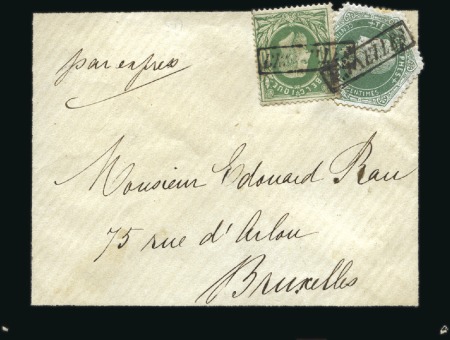 par exprès
BRUXELLES
BELGIQUE
CENTIMES
Monsieur Edouard Rau
75 rue d'Arlon
Bruxelles